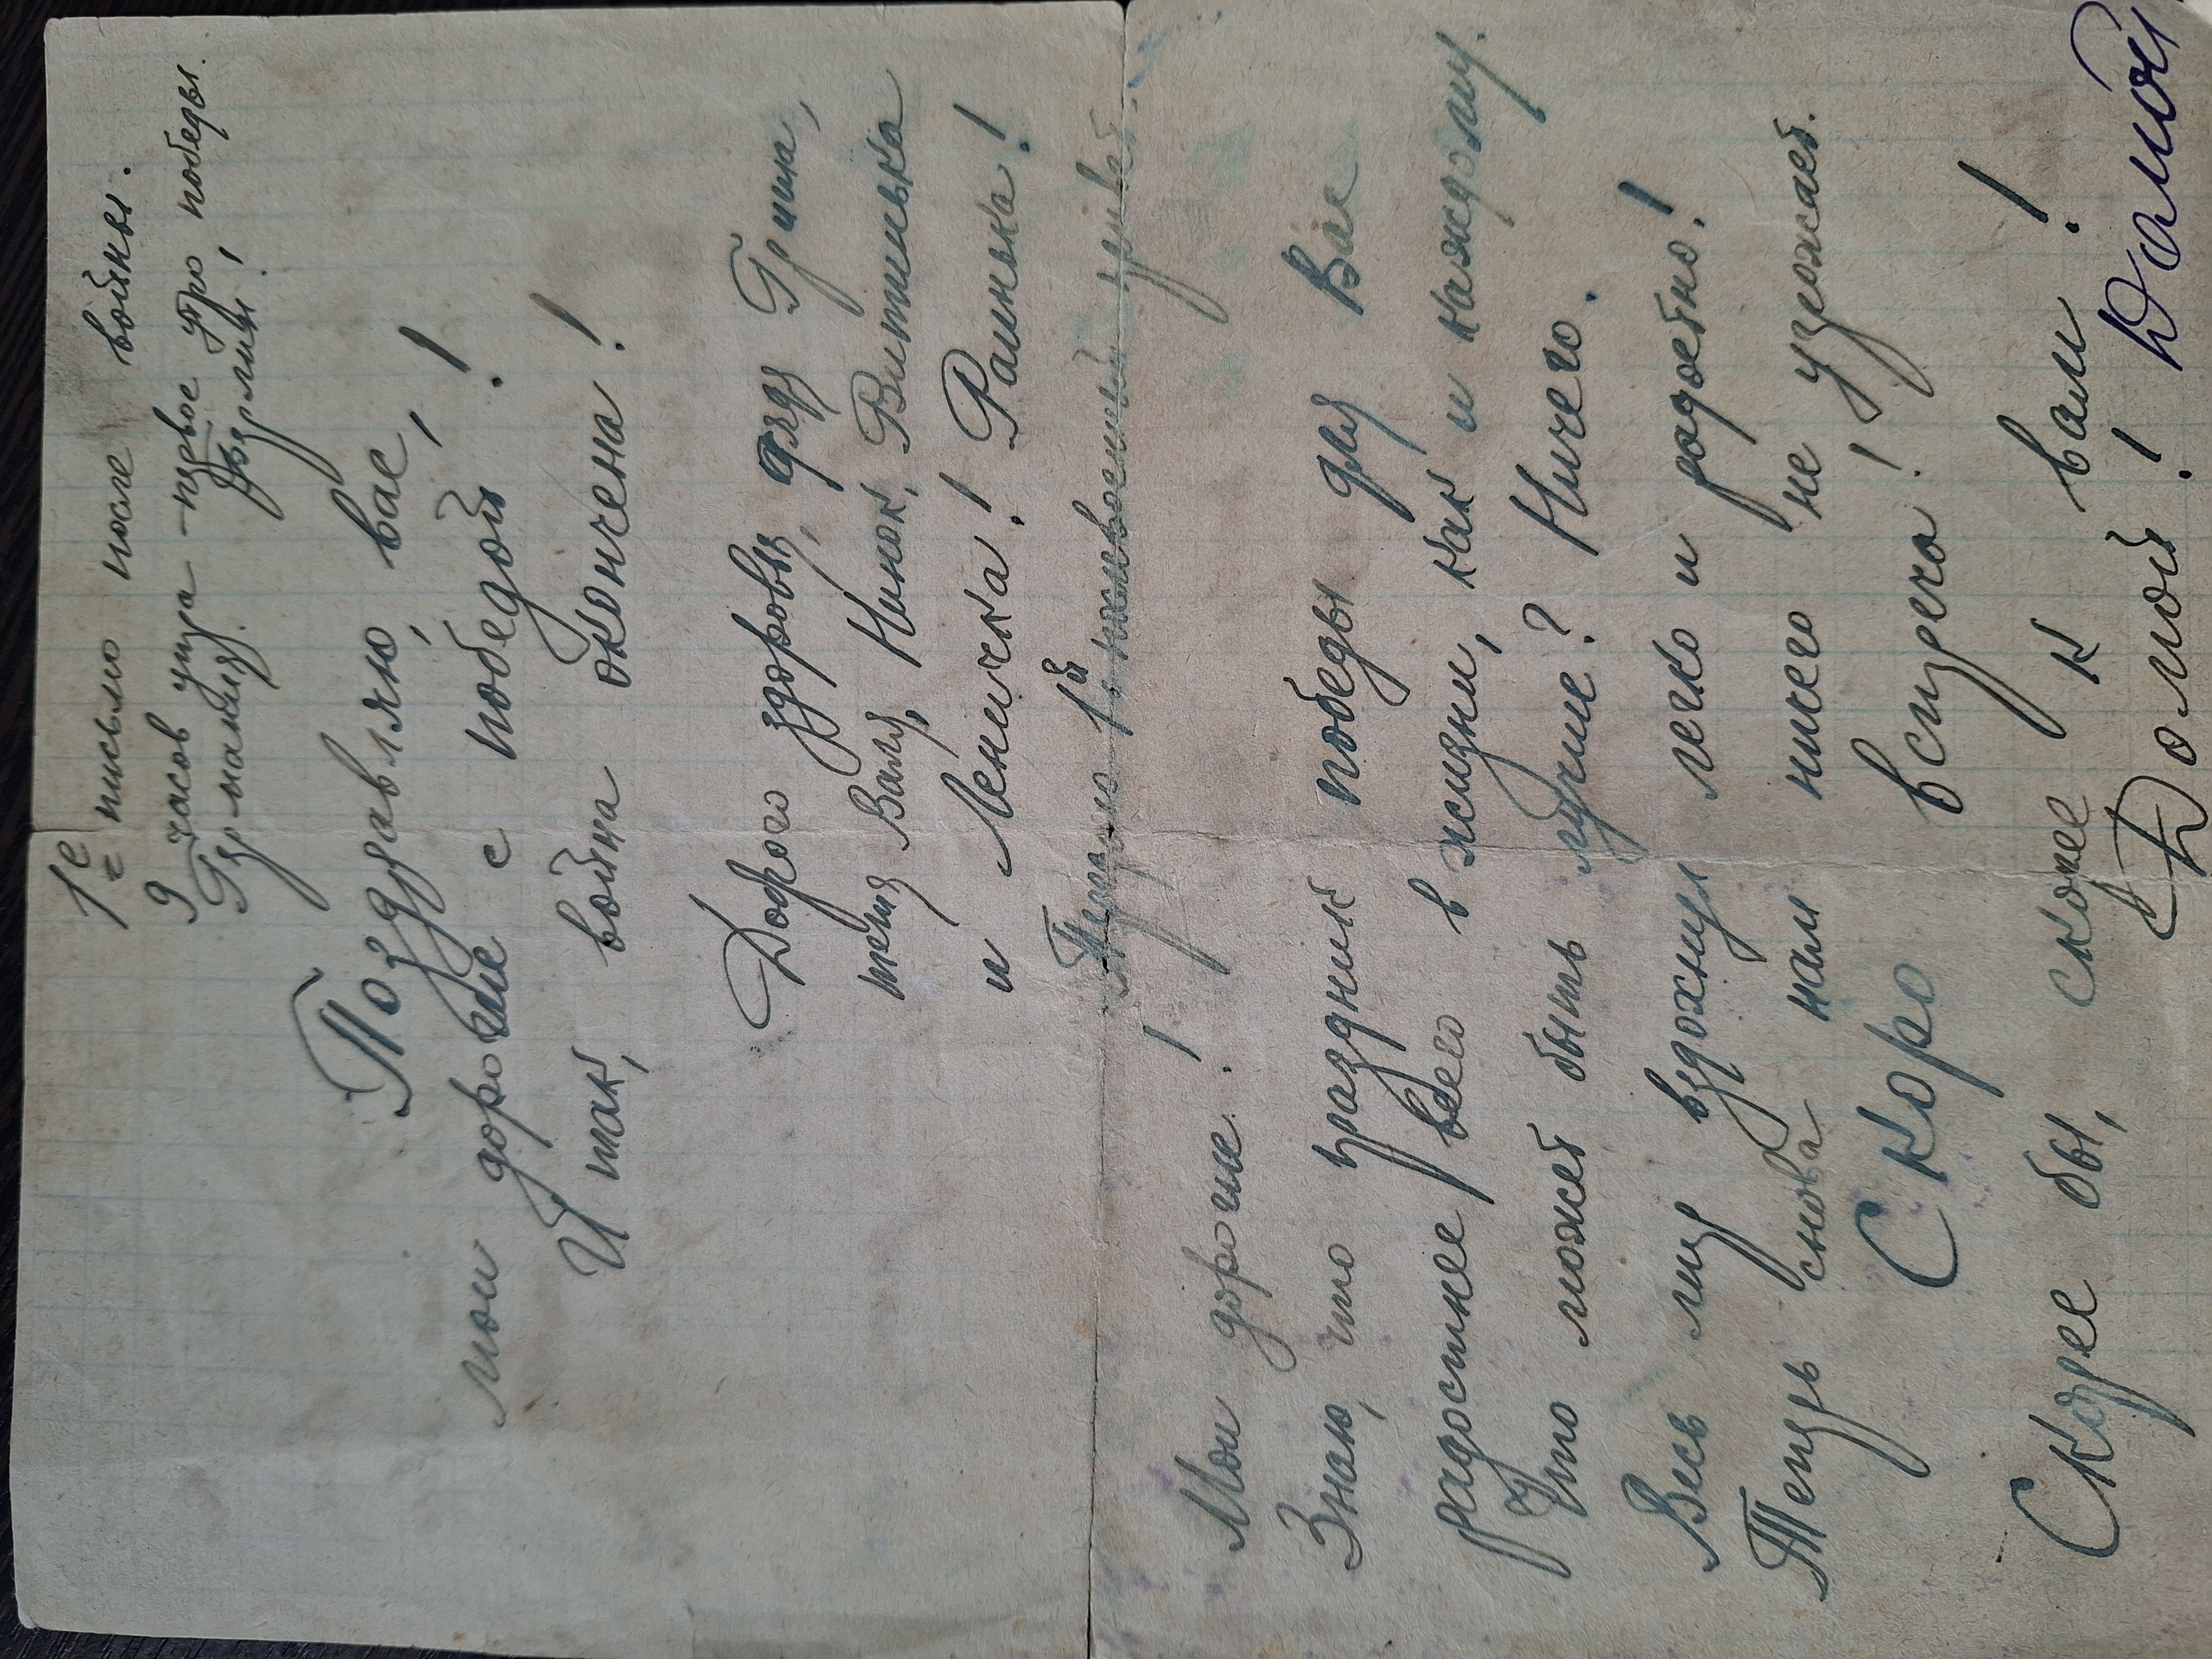 1е письмо после войны.
9 часов утра – первое утро победы.
Германия. Берлин!
Поздравляю, вас,
мои дорогие с победой!
И так, война окончена!
Доброго здоровья, дядя Гриша,
тетя Валя, Нинок, Витинька
и Леничка! Раинька!
Передаю 1й послевоенный привет.
Мои дорогие!
Знаю, что праздник победы для Вас
радостнее всего в жизни, как и каждому.
Что может быть лучше? Ничего.
Весь мир вздохнул легко и радостно!
Теперь снова нам ничего не угрожает.
Скоро встреча!
Скорее бы, скорее к вам!
Домой! Домой